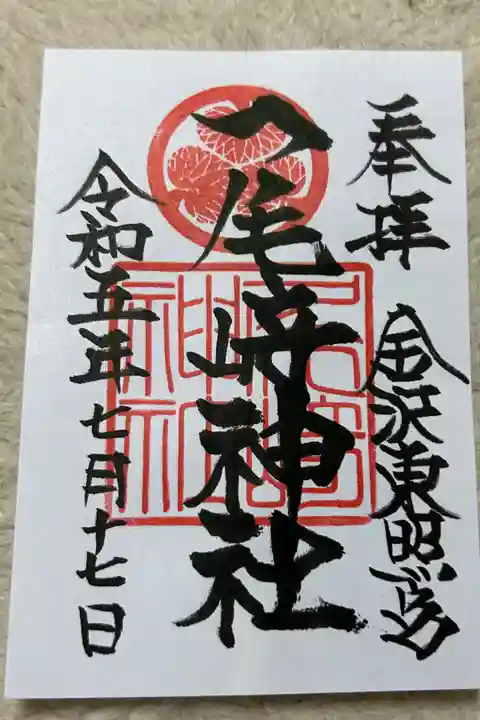 奉拝
金沢東照宮
尾崎神社
尾崎神社
令和五年七月十七日